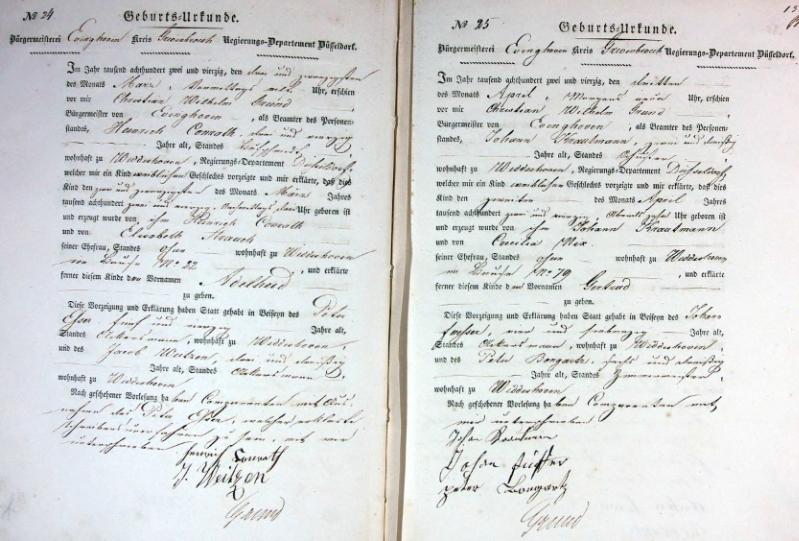 No 24
Geburts-Urkunde.
Bürgermeisterei Evinghoven Kreis Grevenbroich Regierungs-Departement Düsseldorf.
Im Jahr tausend achthundert zwei und vierzig, den drei und zwanzigsten
des Monats März, Vormittags elf Uhr, erschien
vor mir Christian Wilhelm Grund
Bürgermeister von Evinghoven, als Beamter des Personen-
standes, Heinrich Conrath, drei und vierzig
Jahre alt, Standes
wohnhaft zu Widdeshoven, Regierungs-Departement Düsseldorf,
welcher mir ein Kind weiblichen Geschlechts vorzeigte und mir erklärte, daß dies
Kind den zwei und zwanzigsten des Monats März Jahres
tausend achthundert zwei und vierzig, Nachmittags drei Uhr geboren ist
und erzeugt wurde von ihm Heinrich Conrath
und von Elisabeth
seiner Ehefrau, Standes ohne wohnhaft zu Widdeshoven
im Hause No 22, und erklärte
ferner diesem Kinde den Vornamen Adelheid
zu geben.
Diese Vorzeigung und Erklärung haben Statt gehabt in Beiseyn des Peter
Esser fünf und vierzig Jahre alt,
Standes Ackersmann, wohnhaft zu Widdeshoven,
und des Jacob Weitzen, drei und dreißig
Jahre alt, Standes Ackersmann,
wohnhaft zu Widdeshoven
Nach geschehener Vorlesung haben Comparenten mit Aus-
nahme des Peter Esser, welcher erklärte
Schreibens unerfahren zu sein, mit mir
unterschrieben
Heinrich Conrath
J. Weitzen
Grund
No 25
Geburts-Urkunde.
Bürgermeisterei Evinghoven Kreis Grevenbroich Regierungs-Departement Düsseldorf.
Im Jahr tausend achthundert zwei und vierzig, den dritten
des Monats April, Morgens neun Uhr, erschien
vor mir Christian Wilhelm Grund
Bürgermeister von Evinghoven, als Beamter des Personen-
standes, Johann Krautmann, zwei und dreißig
Jahre alt, Standes
wohnhaft zu Widdeshoven, Regierungs-Departement Düsseldorf,
welcher mir ein Kind weiblichen Geschlechts vorzeigte und mir erklärte, daß dies
Kind den zweiten des Monats April Jahres
tausend achthundert zwei und vierzig, Abends zehn Uhr geboren ist
und erzeugt wurde von ihm Johann Krautmann
und von Caecilia
seiner Ehefrau, Standes ohne wohnhaft zu Widdeshoven
im Hause No 79, und erklärte
ferner diesem Kinde den Vornamen Gertrud
zu geben.
Diese Vorzeigung und Erklärung haben Statt gehabt in Beiseyn des Johann
vier und siebenzig Jahre alt,
Standes Ackersmann, wohnhaft zu Widdeshoven
und des Peter Bongartz, sechs und dreißig
Jahre alt, Standes Zimmermeister,
wohnhaft zu Widdeshoven
Nach geschehener Vorlesung haben Comparenten mit
mir unterschrieben
Johan
Johan
Peter Bongartz
Grund